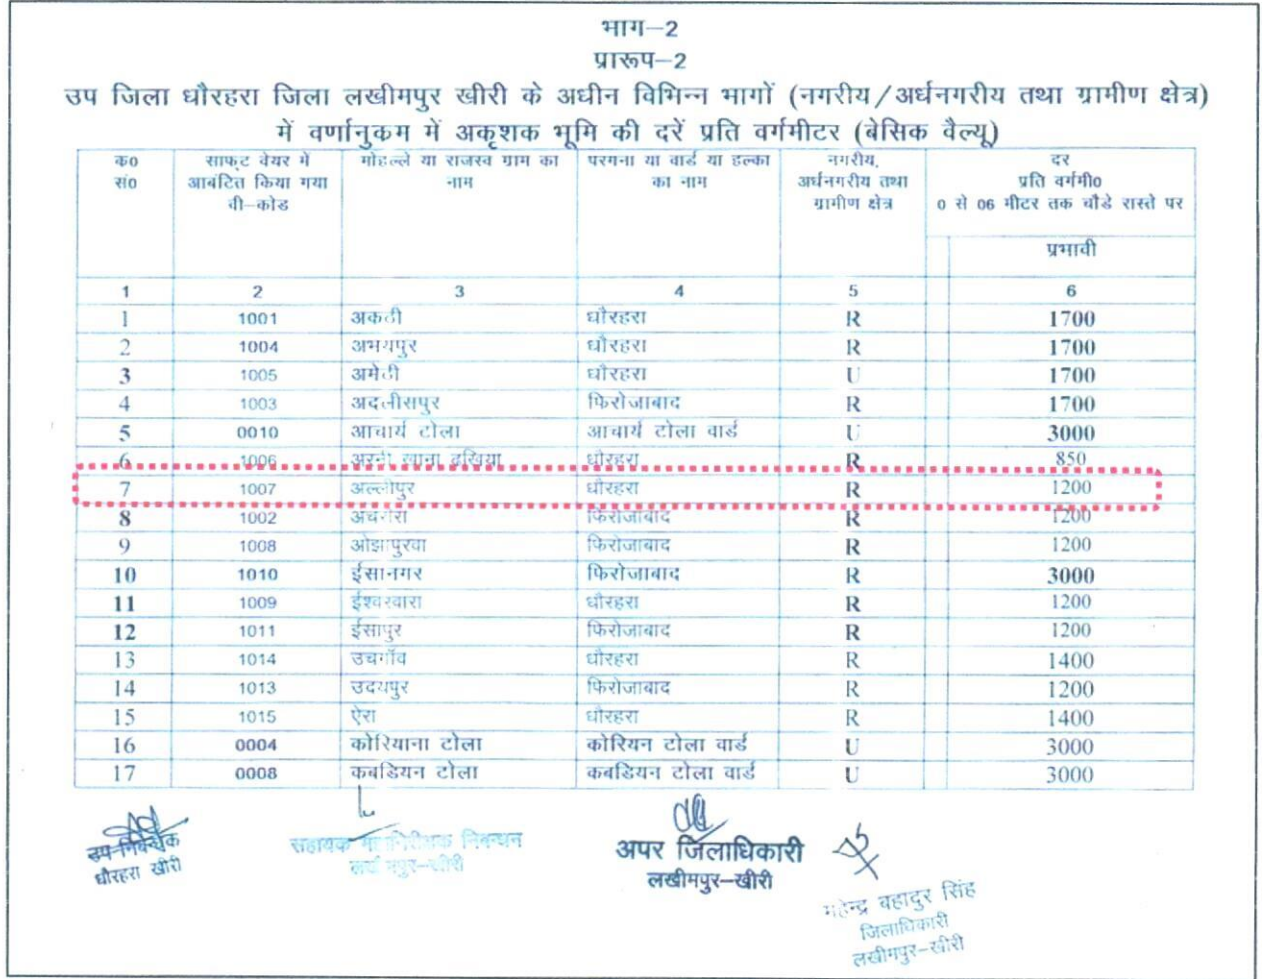 भाग–2
प्रारूप–2
उप जिला धौरहरा जिला लखीमपुर खीरी के अधीन विभिन्न भागों (नगरीय/अर्धनगरीय तथा ग्रामीण क्षेत्र)
में वर्णानुकम में अकृशक भूमि की दरें प्रति वर्गमीटर (बेसिक वैल्यू)
क0 सं0 साफ्ट वेयर में आबंटित किया गया वी–कोड मोहल्ले या राजस्व ग्राम का नाम परगना या वार्ड या हल्का का नाम नगरीय, अर्धनगरीय तथा ग्रामीण क्षेत्र दर प्रति वर्गमी0 0 से 06 मीटर तक चौडे रास्ते पर
प्रभावी
1 2 3 4 5 6
1 1001 अकठी धौरहरा R 1700
2 1004 अभयपुर धौरहरा R 1700
3 1005 अमेठी धौरहरा U 1700
4 1003 अदलीसपुर फिरोजाबाद R 1700
5 0010 आचार्य टोला आचार्य टोला वार्ड U 3000
6 1006 अरनी खाना दखिया धौरहरा R 850
7 1007 अल्लीपुर धौरहरा R 1200
8 1002 फिरोजाबाद R 1200
9 1008 ओझापुरवा फिरोजाबाद R 1200
10 1010 ईसानगर फिरोजाबाद R 3000
11 1009 ईश्वरवारा धौरहरा R 1200
12 1011 ईसापुर फिरोजाबाद R 1200
13 1014 उचगाँव धौरहरा R 1400
14 1013 उदयपुर फिरोजाबाद R 1200
15 1015 ऐरा धौरहरा R 1400
16 0004 कोरियाना टोला कोरियन टोला वार्ड U 3000
17 0008 कबडियन टोला कबडियन टोला वार्ड U 3000
उप-निबन्धक
धौरहरा खीरी
सहायक महानिरीक्षक निबन्धन
लखीमपुर–खीरी
अपर जिलाधिकारी
लखीमपुर–खीरी
महेन्द्र बहादुर सिंह
जिलाधिकारी
लखीमपुर–खीरी